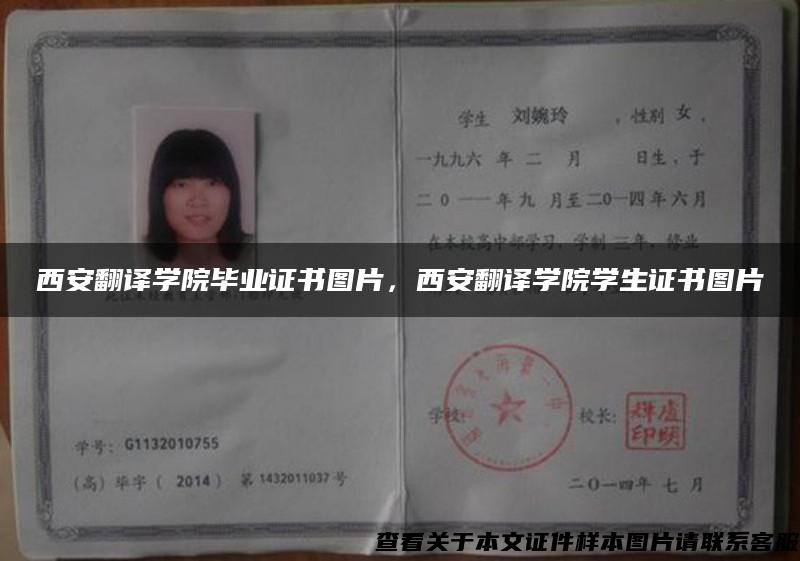 学生 刘婉玲 ，性别 女 ，
一九九六 年 二 月 日生，于
二0一一年 九 月至二0一四年 六 月
在本校高中部学习，学制 三年，修业
西安翻译学院毕业证书图片，西安翻译学院学生证书图片
学校：
校长：
学号：G1132010755
（高）毕字（ 2014 ）第 1432011037 号
二0一四年 七 月
查看关于本文证件样本图片请联系客服